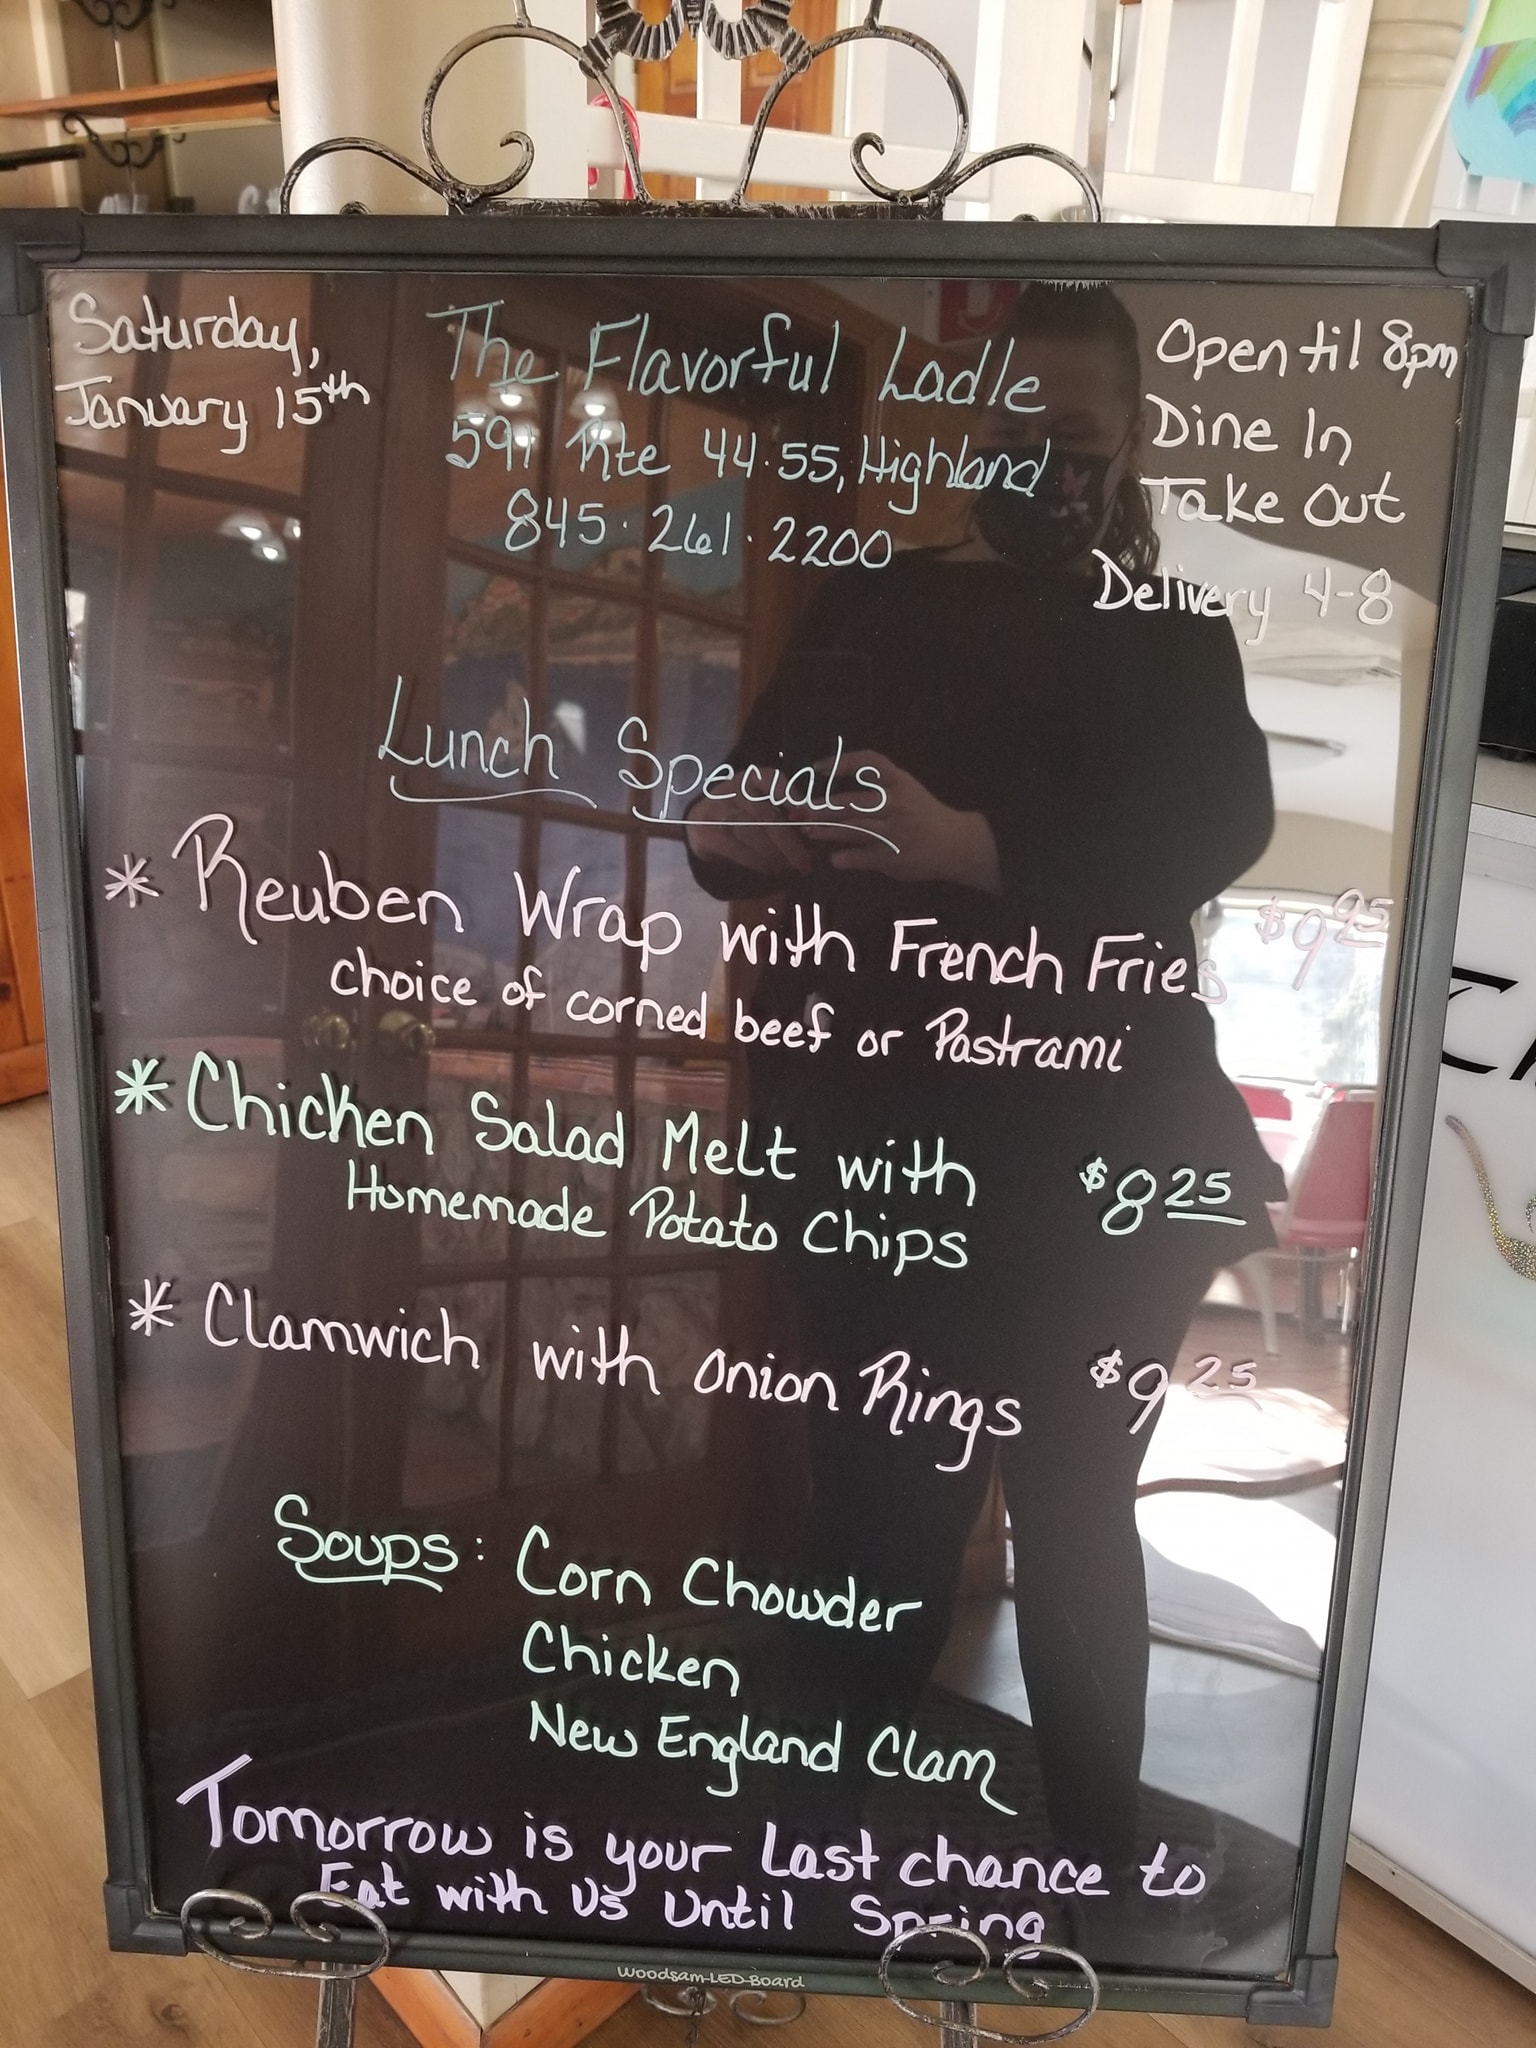 Saturday,
January 15th
The Flavorful Ladle
591 Rte 44·55, Highland
845·261·2200
Open til 8pm
Dine In
Take Out
Delivery 4-8
Lunch Specials
* Reuben Wrap with French Fries $9 95
choice of corned beef or Pastrami
* Chicken Salad Melt with $8 25
Homemade Potato Chips
* Clamwich with Onion Rings $9 25
Soups: Corn Chowder
Chicken
New England Clam
Tomorrow is your Last chance to
Eat with Us Until Spring
Woodsam-LED-Board